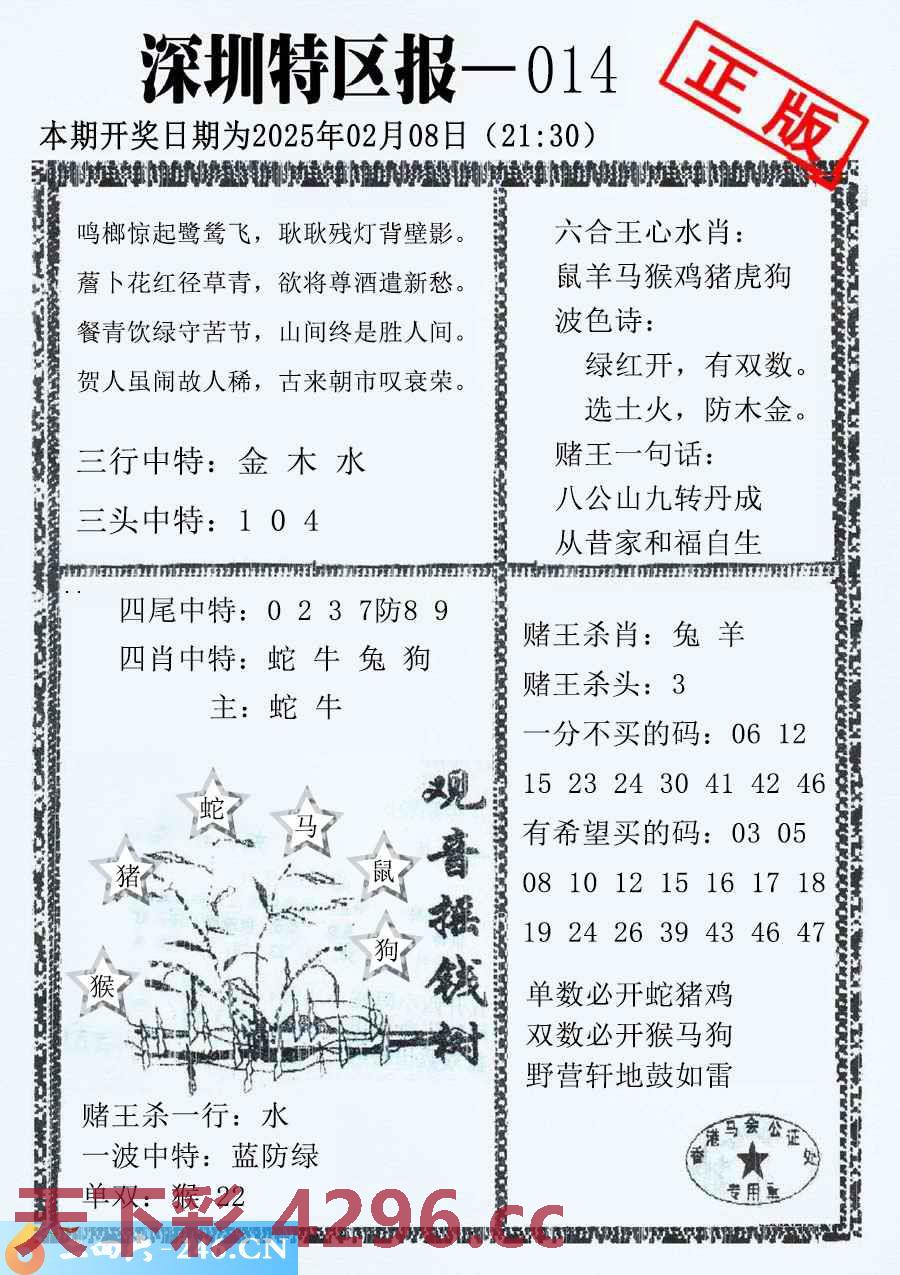 深圳特区报—014
正版
本期开奖日期为2025年02月08日（21:30）
鸣榔惊起鹭鸶飞，耿耿残灯背壁影。
薝卜花红径草青，欲将尊酒遣新愁。
餐青饮绿守苦节，山间终是胜人间。
贺人虽闹故人稀，古来朝市叹衰荣。
三行中特：金 木 水
三头中特：1 0 4
六合王心水肖：
鼠羊马猴鸡猪虎狗
波色诗：
绿红开，有双数。
选土火，防木金。
赌王一句话：
八公山九转丹成
从昔家和福自生
四尾中特：0 2 3 7防8 9
四肖中特：蛇 牛 兔 狗
主：蛇 牛
观音摇钱树
蛇
马
猪
鼠
狗
猴
赌王杀一行：水
一波中特：蓝防绿
单双：猴 22
赌王杀肖：兔 羊
赌王杀头：3
一分不买的码：06 12
15 23 24 30 41 42 46
有希望买的码：03 05
08 10 12 15 16 17 18
19 24 26 39 43 46 47
单数必开蛇猪鸡
双数必开猴马狗
野营轩地鼓如雷
香港马会公证处
专用章
天下彩 4296.cc
-246.CN